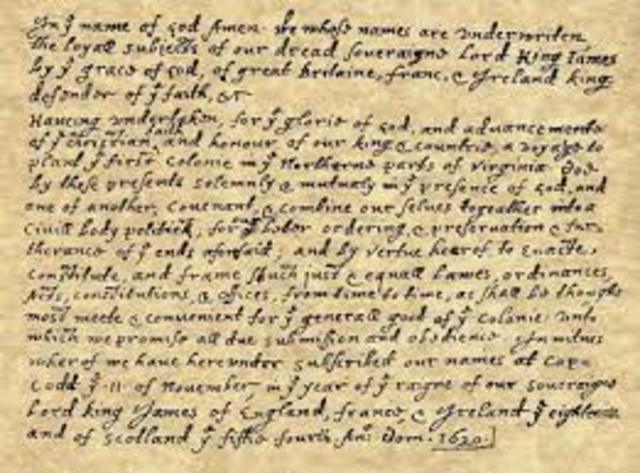 In yͤ name of god Amen. We whose names are vnderwriten,
the loyall subiects of our dread soueraigne Lord King Iames
by yͤ grace of god, of great Britaine, franc, & Ireland king,
defender of yͤ faith, &c
Haueing vndertaken, for yͤ glorie of god, and aduancemente
of yͤ christian faith and honour of our king & countrie, a voyage to
plant yͤ first colonie in yͤ Northerne parts of Virginia. Doe
by these presents solemnly & mutualy in yͤ presence of god, and
one of another, couenant, & combine our selues togeather into a
Ciuill body politick, for our better ordering, & preseruation & fur-
therance of yͤ ends aforesaid; and by vertue hearof to enacte,
constitute, and frame shuch just & equall Lawes, ordinances,
Acts, constitutions, & offices, from time to time, as shall be thought
most meete & conuenient for yͤ generall good of yͤ colonie: vnto
which we promise all due submission and obedience. In witnes
wherof we have herevnder subscribed our names at Cap-
Codd yͤ ·11· of Nouember, in yͤ year of yͤ raigne of our soueraigne
Lord king Iames of England, france, & Ireland yͤ eighteenth
and of Scotland yͤ fiftie fourth. Anͦ: Dom. 1620.]